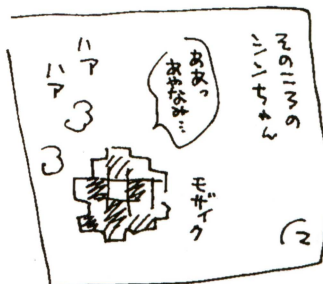 そのころの
シンちゃん
ああっ
あやなみ…
ハア
ハア
モザイク
12